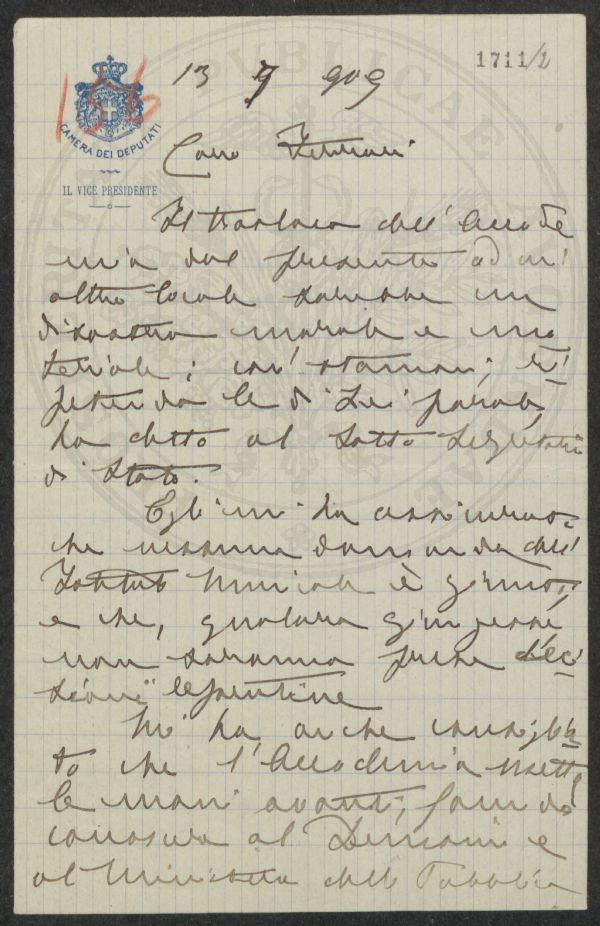 1711/2
156
13 7 909
CAMERA DEI DEPUTATI
IL VICE PRESIDENTE
Caro
Il trasloco dell'Accade
mia dal presente ad un'
altro locale sarebbe un
disastro morale e ma
teriale; così stamani, ri
petendo le di Lei parole,
ho detto al Sotto Segretario
di Stato.
Egli mi ha assicurato
che nessuna domanda dell'
Istituto Musicale è giunta,
e che, qualora giungesse
non saranno prese deci
sioni repentine
Mi ha anche consiglia
to che l'Accademia metta
le mani avanti, facendo
conoscere al Demanio e
al Ministero della Pubblica